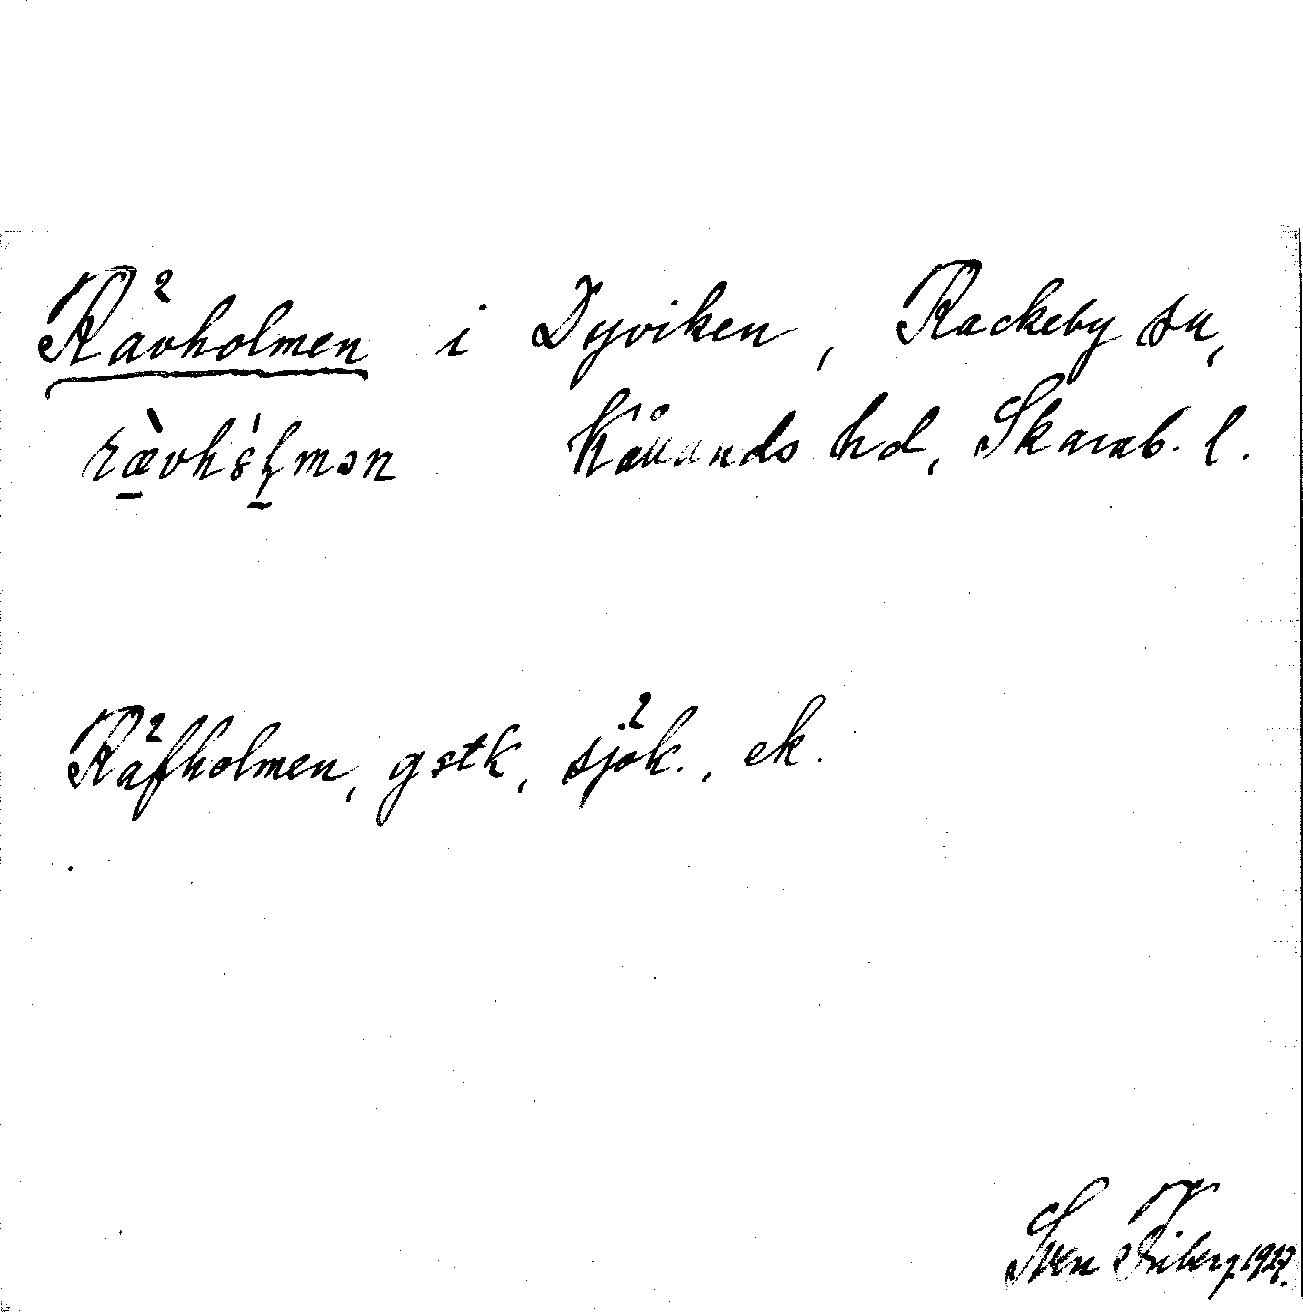 Rävholmen i Dyviken, Rackeby sn,
rævhòlmən Kållands hd, Skarab. l.
Räfholmen, gstk, sjök., ek.
Sven Friberg 1927.